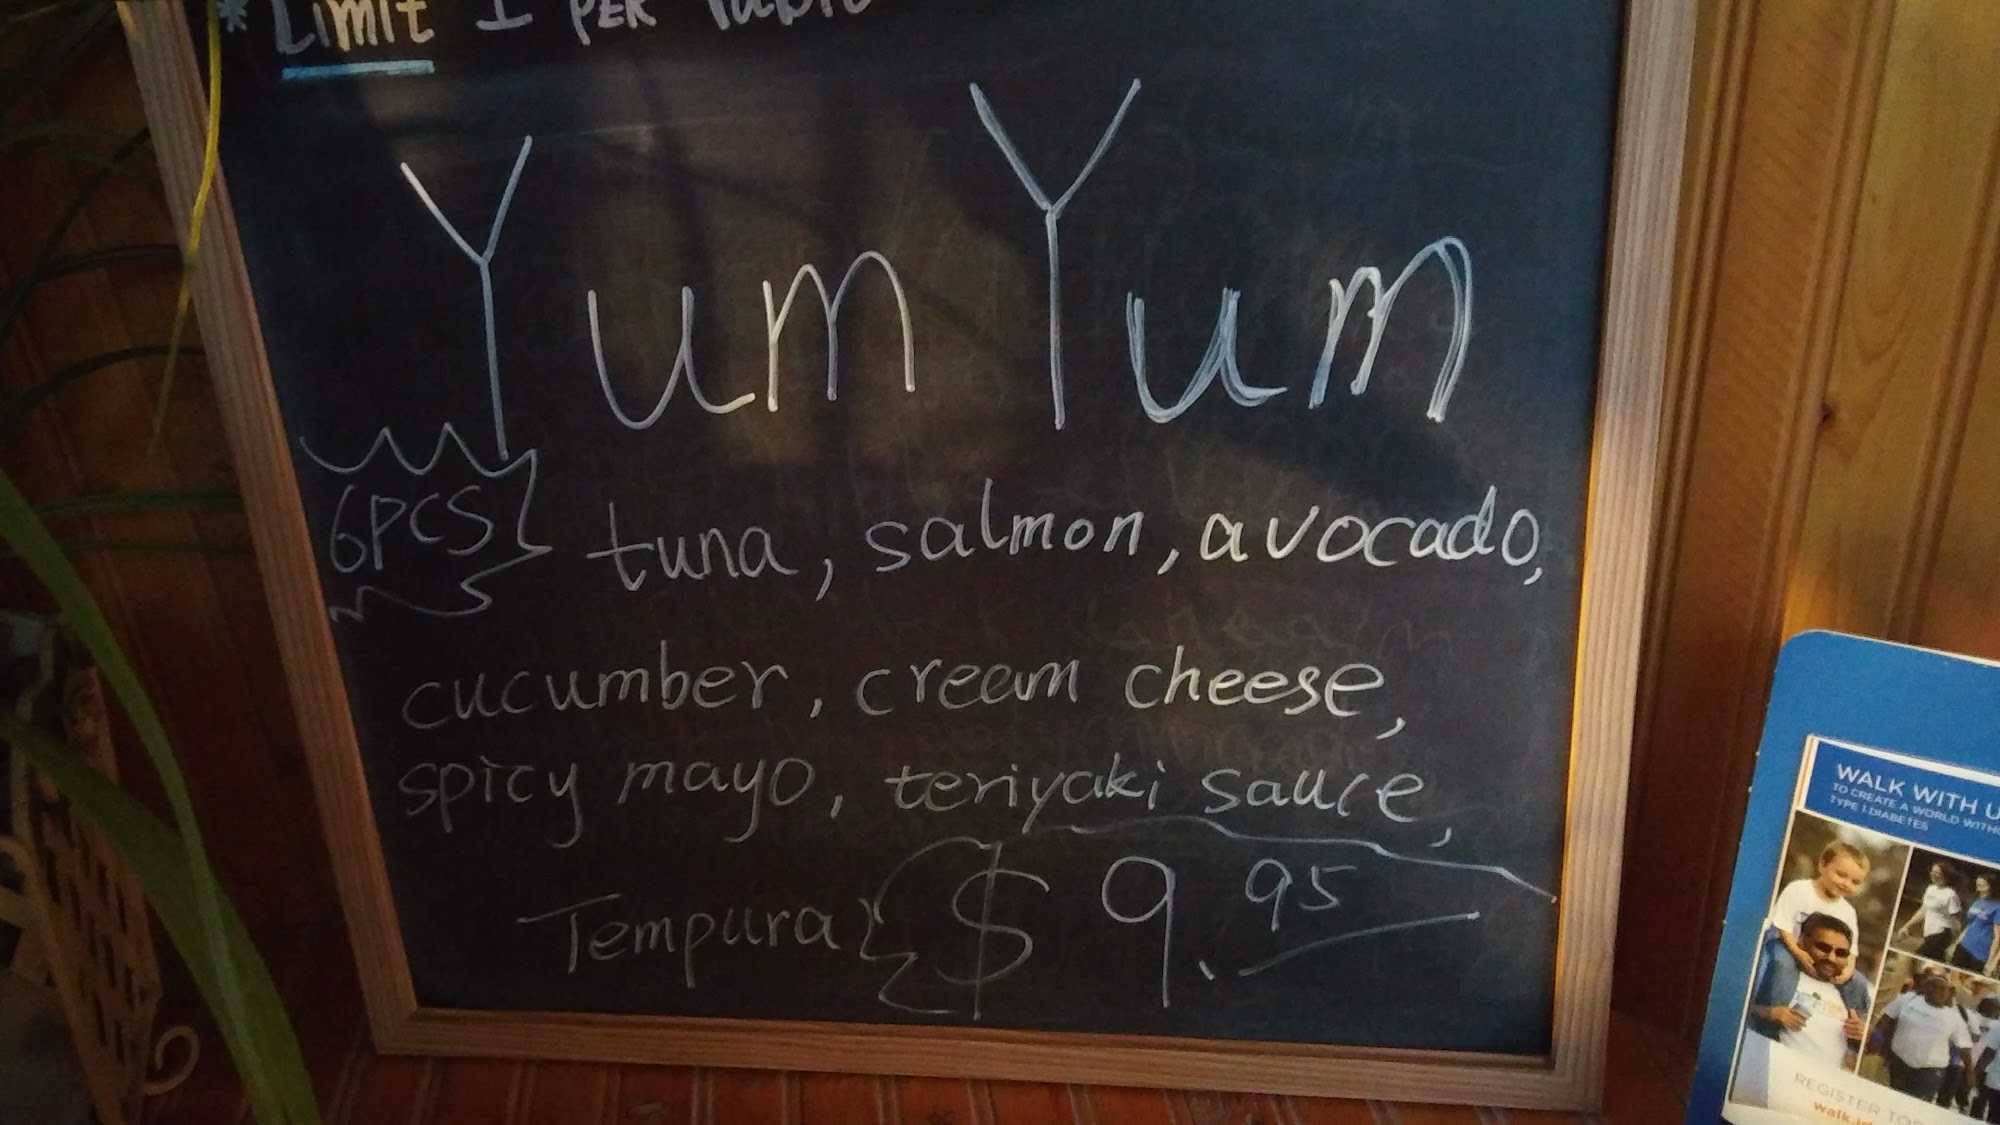 * Limit 1 PER Table
Yum Yum
6PCS tuna, salmon, avocado,
cucumber, cream cheese,
spicy mayo, teriyaki sauce,
Tempura $9.95
WALK WITH U
TO CREATE A WORLD WITHO
TYPE 1 DIABETES
REGISTER TOD
walk.jd